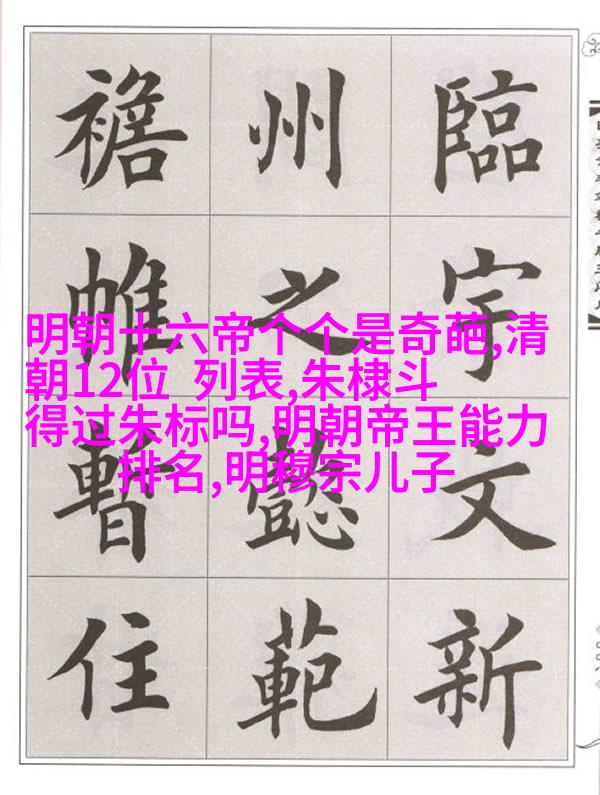 臨宇文新
州之懿範
襜帷暫住
明朝十六帝个个是奇葩,清
朝12位 列表,朱棣斗
得过朱标吗,明朝帝王能力
排名,明穆宗儿子